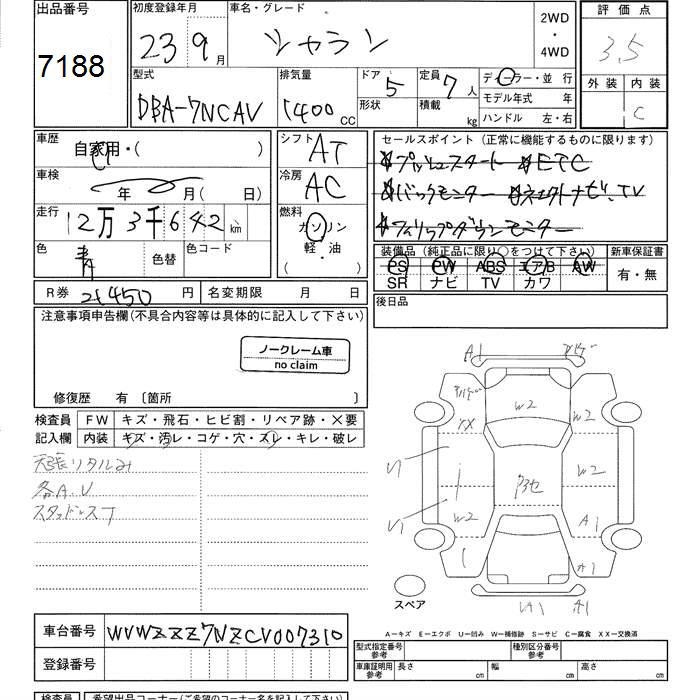 出品番号
7188
初度登録年月
23 9月
車名・グレード
シャラン
2WD
・
4WD
評価点
3,5
外装 内装
C
型式
DBA-7NCAV
排気量
1400 CC
ドア 5
形状
定員 7 人
積載 kg
ディーラー・並行
モデル年式 年
ハンドル 左・右
車歴
自家用・( )
車検
年 月( 日)
走行
12万3千642 km
色
青
色替
色コード
シフト
AT
冷房
AC
燃料
ガソリン
軽・油
( )
セールスポイント(正常に機能するものに限ります)
プッシュスタート ETC
バックモニター TV
フィリップダウンモニター
装備品(純正品に限り○をつけて下さい)
PS PW ABS エアB AW
SR ナビ TV カワ
新車保証書
有・無
後日品
R券 21450 円
名変期限 月 日
注意事項申告欄(不具合内容等は具体的に記入して下さい)
ノークレーム車
no claim
修復歴 有 〔箇所 〕
検査員
記入欄
FW キズ・飛石・ヒビ割・リペア跡・×要
内装 キズ・汚レ・コゲ・穴・スレ・キレ・破レ
天張リタルみ
各A.U
スタッドレス
A1
W2
W2
W2
W2
A1
A1
A1
スペア
A−キズ E−エクボ U−凹み W−補修跡 S−サビ C−腐食 XX−交換済
車台番号 WVWZZZ7NZCV007310
登録番号
型式指定番号
参考
種別区分番号
参考
車庫証明用
参考
長さ cm
幅 cm
高さ cm
検査員
希望出品コーナー(ご希望のコーナー名を記入して下さい)